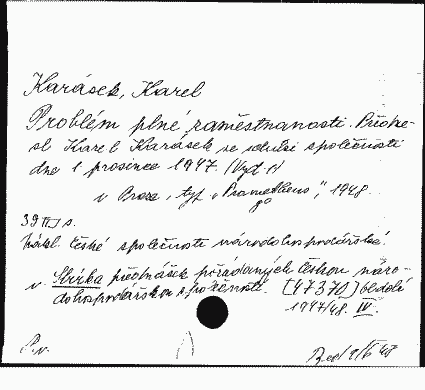 Karásek, Karel
Problém plné zaměstnanosti. Předne-
sl Karel Karásek ve schůzi společnosti
dne 1 prosince 1947. (Vyd. 1)
v Praze, typ. „Prometheus", 1948.
8°
39 [I] s.
Nákl. České společnosti národohospodářské.
v Sbírka přednášek pořádaných Českou náro-
dohospodářskou společností. [47370] období
1947/48. IV.
P. v.